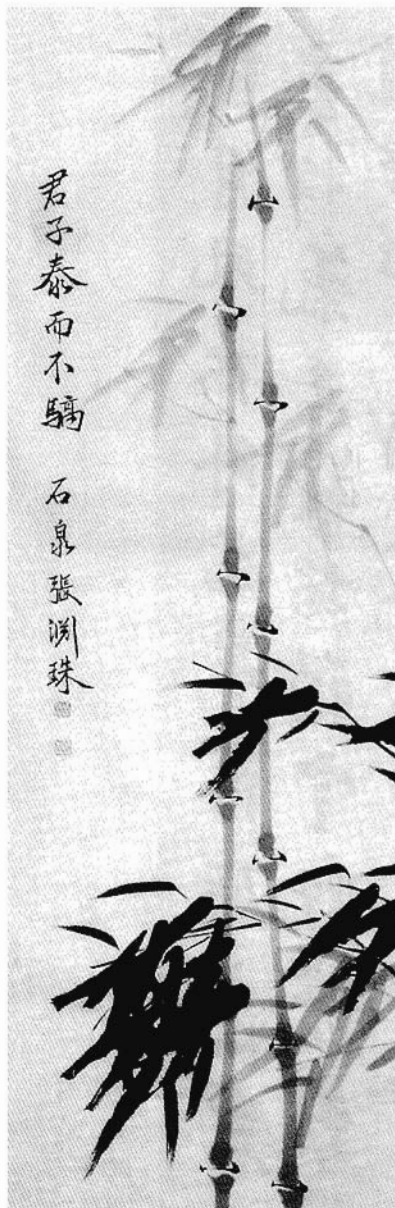 君子泰而不驕 石泉張淵珠